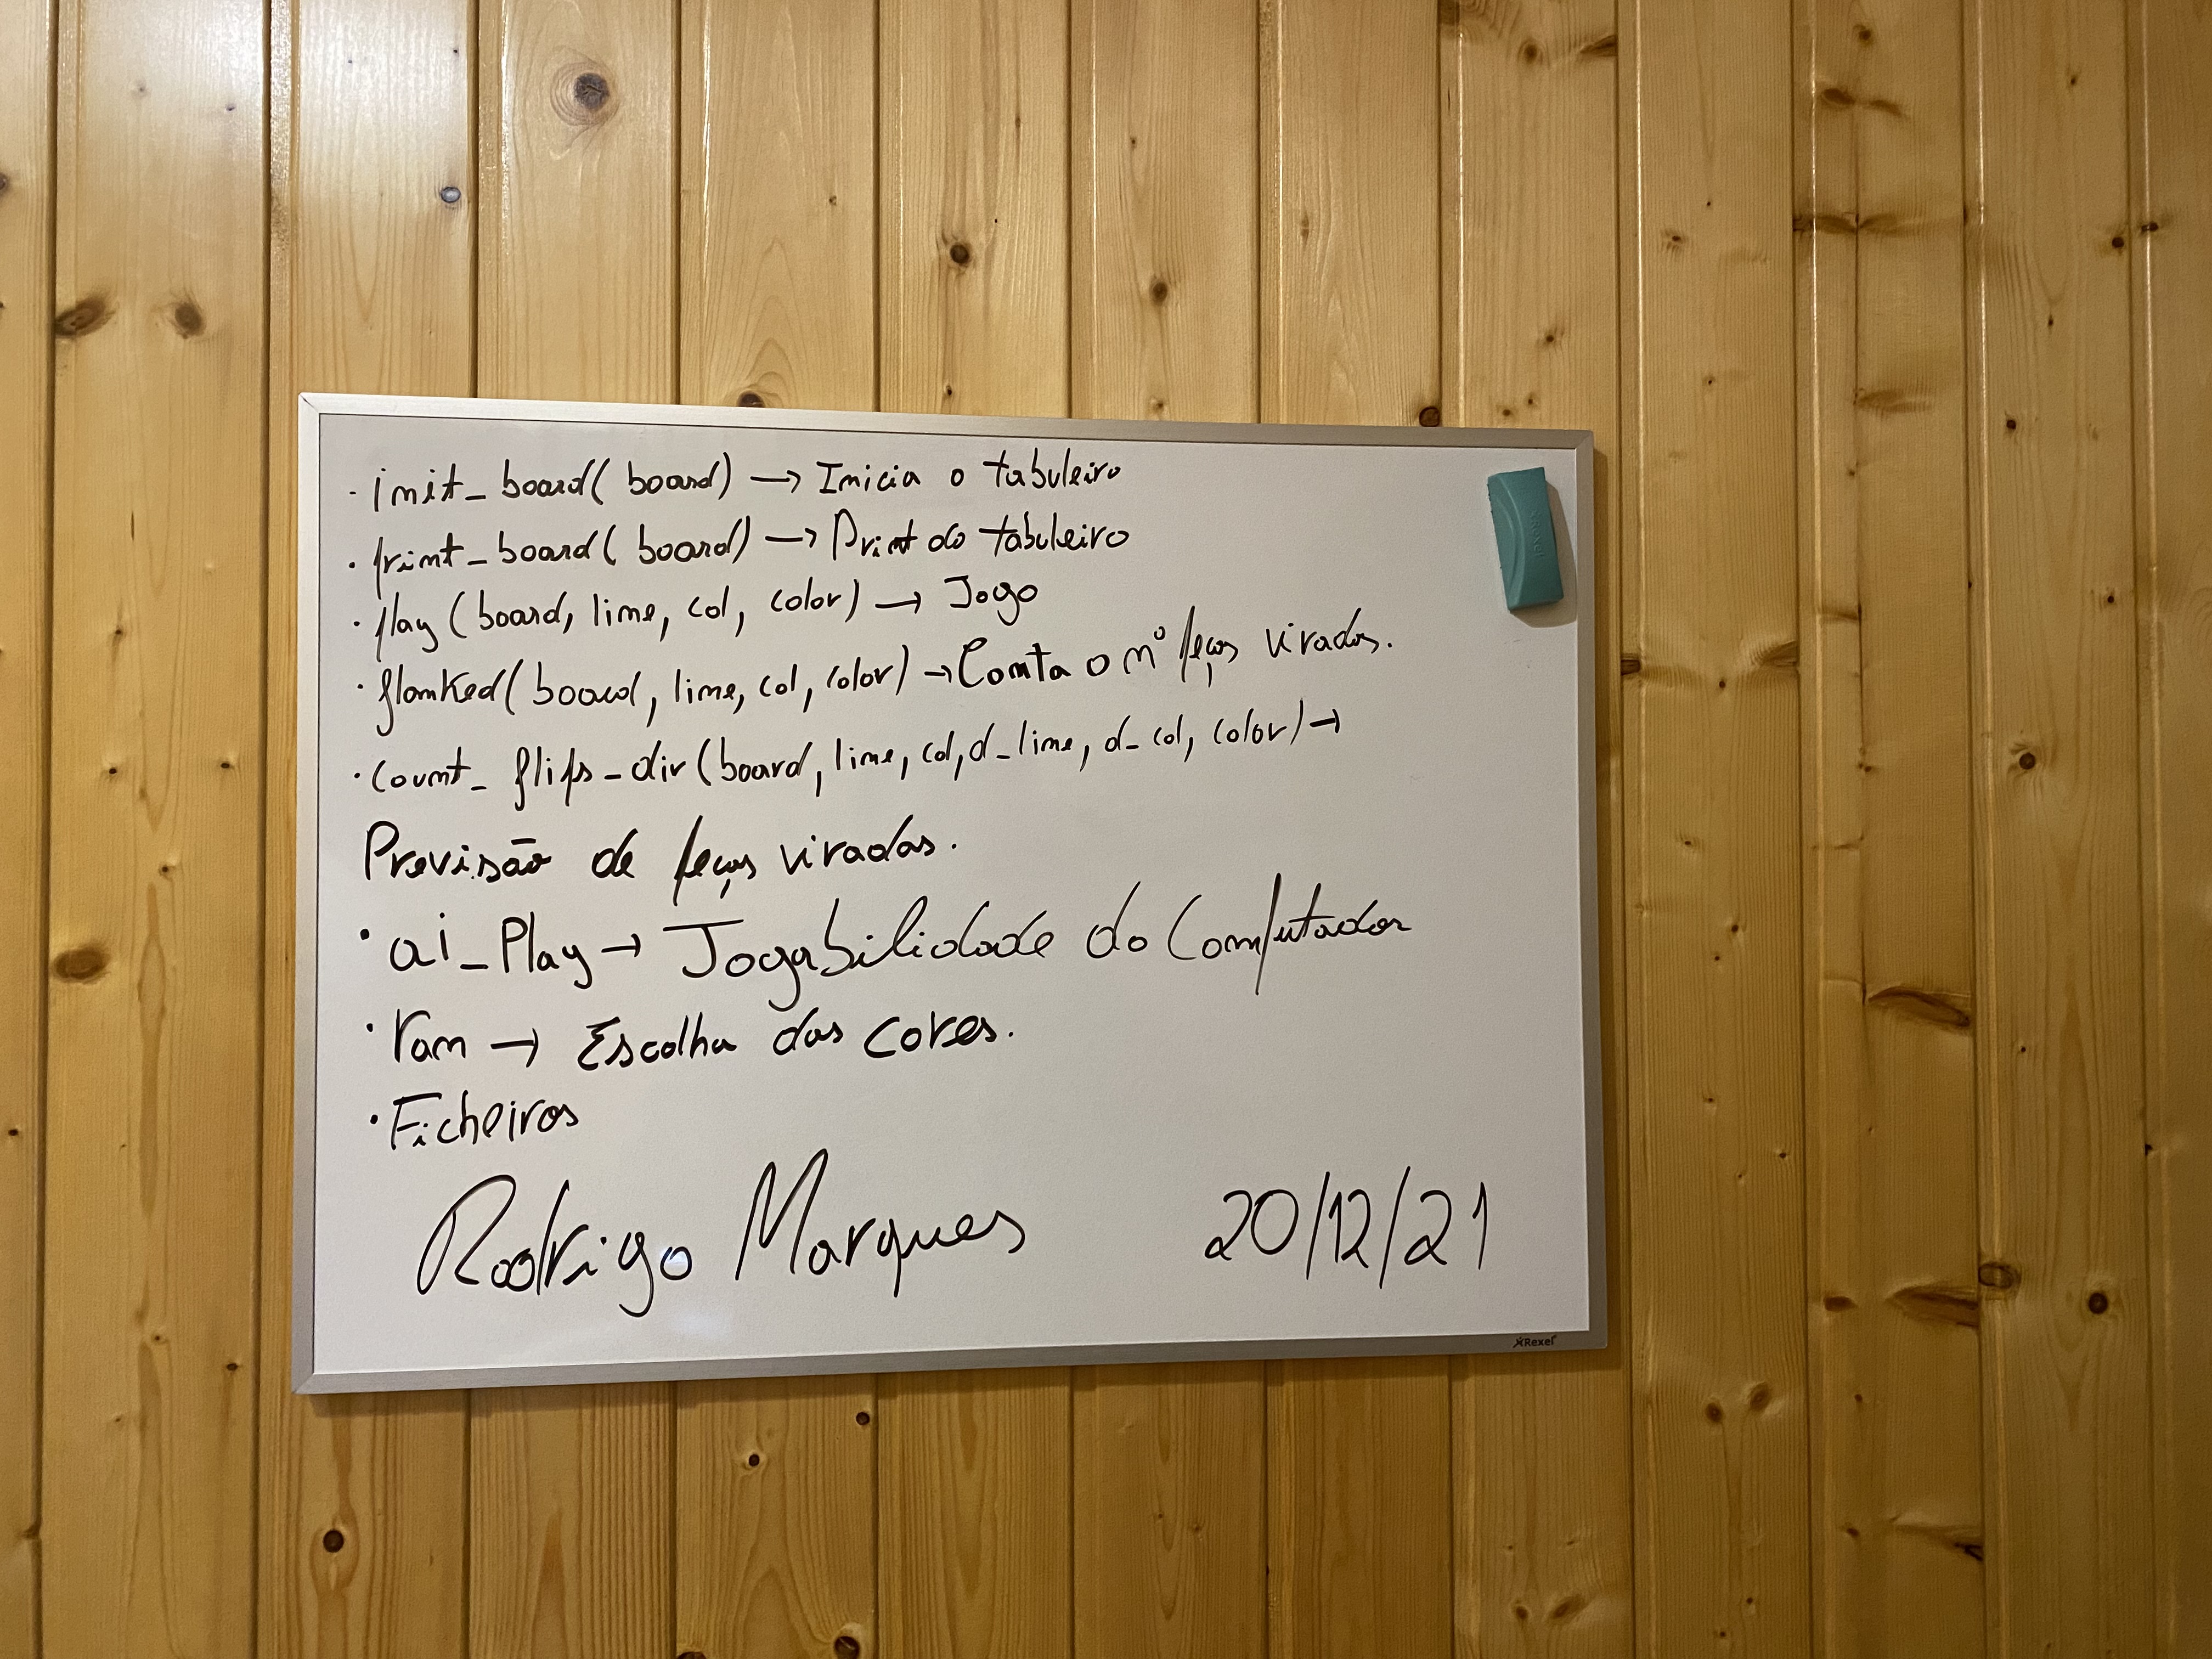 · init_board( board) → Inicia o tabuleiro
· print_board( board) → Print do tabuleiro
· play (board, line, col, color) → Jogo
· flanked( board, line, col, color) → Conta o nº peças viradas.
· count_ flips_dir (board, line, col, d_line, d_col, color) →
Previsão de peças viradas.
· ai_Play → Jogabilidade do Computador
· ran → Escolha das cores.
· Ficheiros
Rodrigo Marques 20/12/21
Rexel